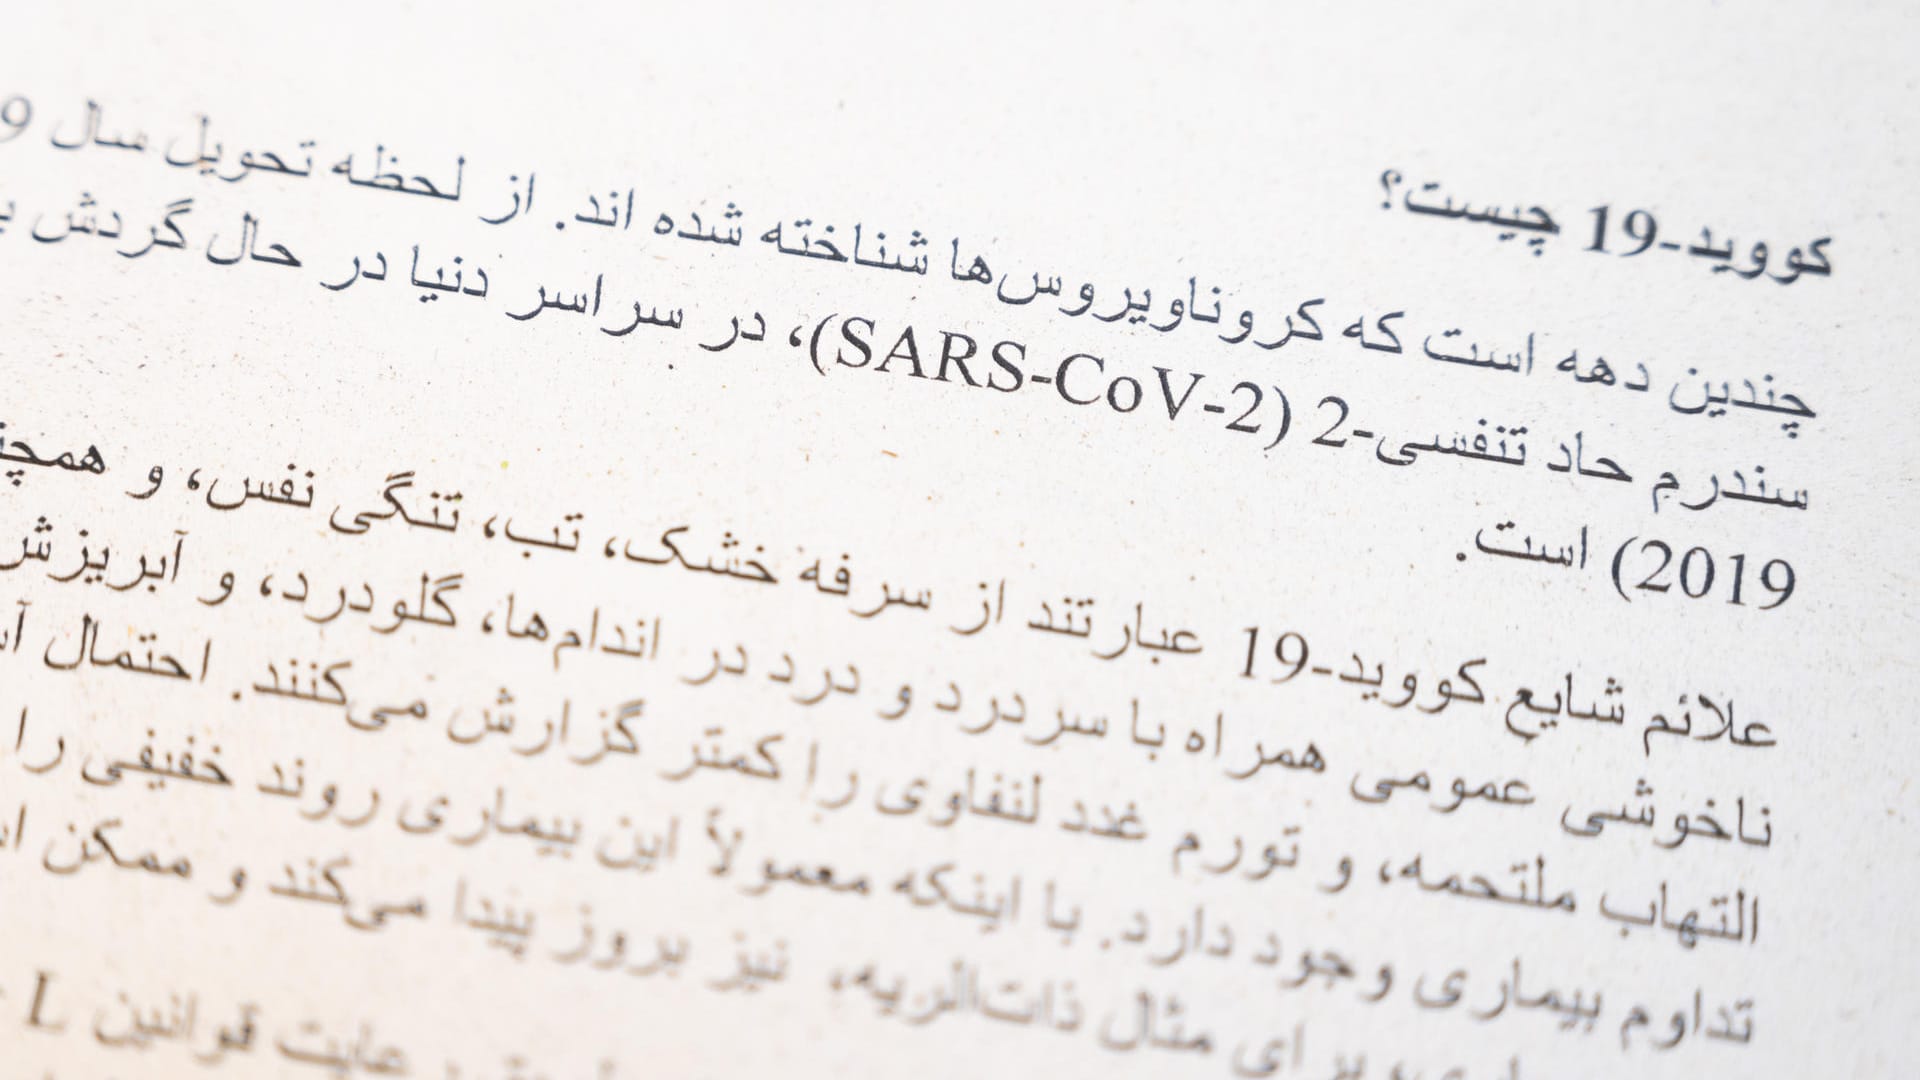 کووید-19 چیست؟
چندین دهه است که کروناویروس‌ها شناخته شده اند. از لحظه تحویل سال
سندرم حاد تنفسی-2 (SARS-CoV-2)، در سراسر دنیا در حال گردش
2019) است.
علائم شایع کووید-19 عبارتند از سرفه خشک، تب، تنگی نفس، و
ناخوشی عمومی همراه با سردرد و درد در اندام‌ها، گلودرد، و آبریزش
التهاب ملتحمه، و تورم غدد لنفاوی را کمتر گزارش می‌کنند. احتمال
تداوم بیماری وجود دارد. با اینکه معمولاً این بیماری روند خفیفی را
برای مثال ذات‌الریه، نیز بروز پیدا می‌کند و ممکن
قوانین L